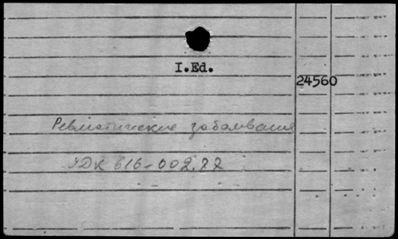 I.Ed.
24560
Ревматические заболвания
УДК 616-002.77